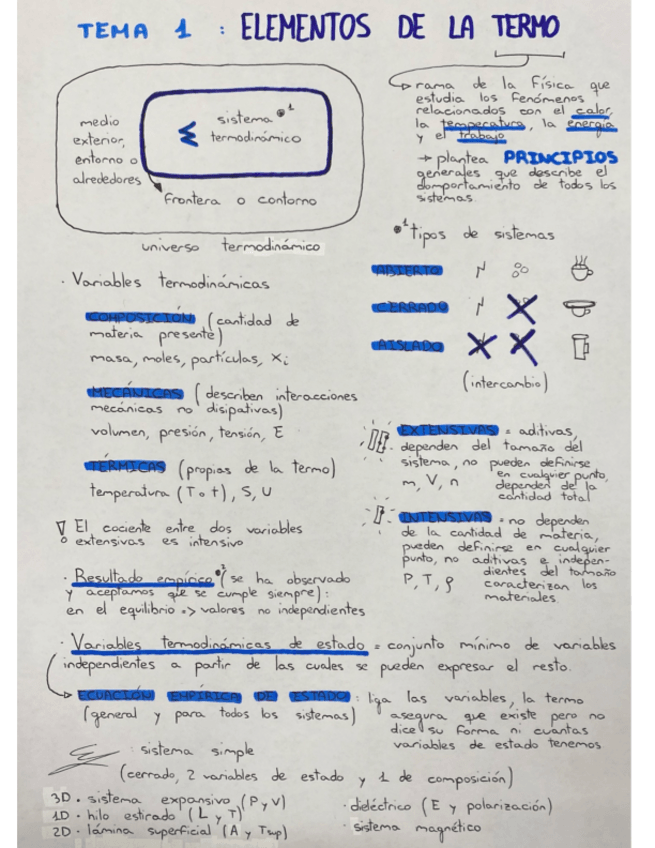 TEMA 1 : ELEMENTOS DE LA TERMO
medio
exterior,
entorno o
alrededores
sistema •¹
termodinámico
frontera o contorno
universo termodinámico
rama de la Física que
estudia los fenómenos
relacionados con el calor,
la temperatura, la energía
y el trabajo
→ plantea PRINCIPIOS
generales que describe el
comportamiento de todos los
sistemas.
•¹ tipos de sistemas
ABIERTO
CERRADO
AISLADO
(intercambio)
· Variables termodinámicas
COMPOSICIÓN (cantidad de
materia presente)
masa, moles, partículas, Xi
MECÁNICAS (describen interacciones
mecánicas no disipativas)
volumen, presión, tensión, E
TÉRMICAS (propias de la termo)
temperatura (T o t), S, U
El cociente entre dos variables
extensivas es intensivo
EXTENSIVAS = aditivas,
dependen del tamaño del
sistema, no pueden definirse
en cualquier punto,
m, V, n dependen de la
cantidad total
INTENSIVAS = no dependen
de la cantidad de materia,
pueden definirse en cualquier
punto, no aditivas e indepen-
dientes del tamaño
P, T, ρ caracterizan los
materiales.
· Resultado empírico (se ha observado
y aceptamos que se cumple siempre):
en el equilibrio => valores no independientes
· Variables termodinámicas de estado = conjunto mínimo de variables
independientes a partir de las cuales se pueden expresar el resto.
ECUACIÓN EMPÍRICA DE ESTADO : liga las variables, la termo
(general y para todos los sistemas) asegura que existe pero no
dice su forma ni cuantas
variables de estado tenemos
: sistema simple
(cerrado, 2 variables de estado y 1 de composición)
3D · sistema expansivo (P y V)
1D · hilo estirado (L y T)
2D · lámina superficial (A y Tsup)
· dieléctrico (E y polarización)
· sistema magnético